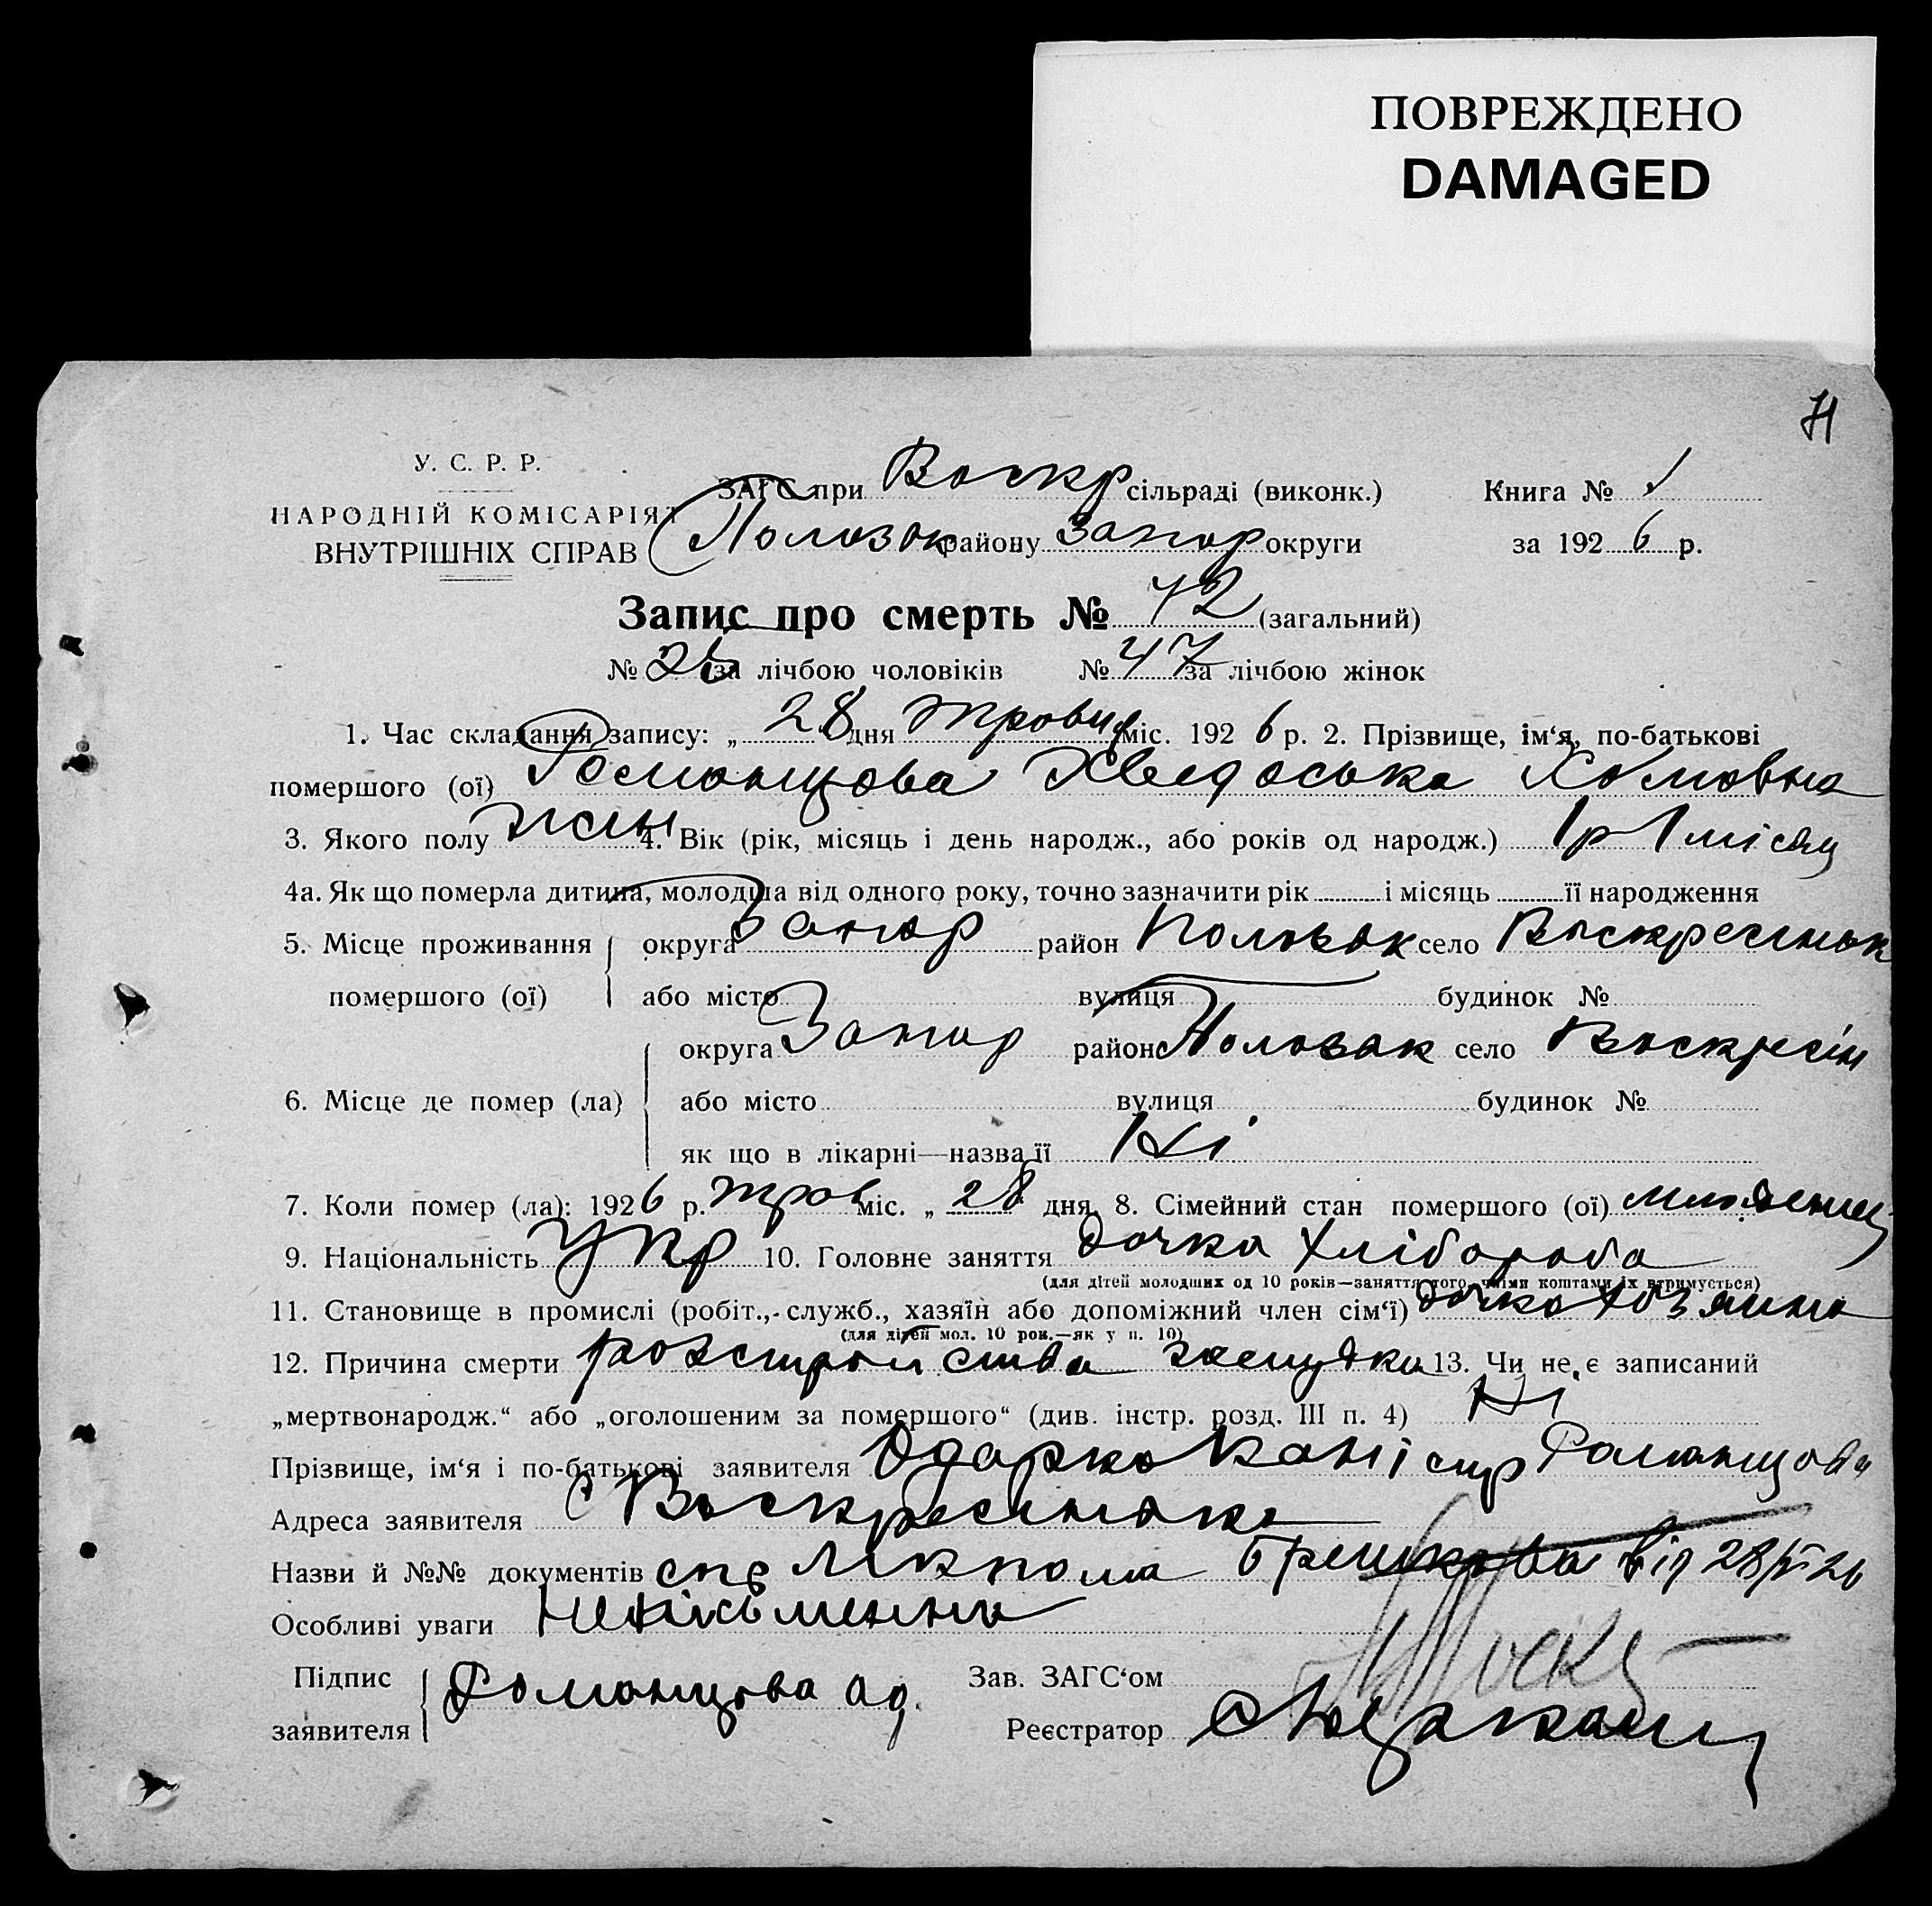 ПОВРЕЖДЕНО
DAMAGED
71
У. С. Р. Р.
НАРОДНІЙ КОМІСАРІЯТ
ВНУТРІШНІХ СПРАВ
ЗАГС при Воскр сільраді (виконк.) Книга № 1
Полозок району Запор округи за 1926 р.
Запис про смерть № 72 (загальний)
№ 25 за лічбою чоловіків № 47 за лічбою жінок
1. Час складання запису: „ 28 дня Травня міс. 1926 р. 2. Прізвище, ім‘я, по-батькові
помершого (ої) Романцова Хведоська Хомовна
3. Якого полу жін 4. Вік (рік, місяць і день народж., або років од народж.) 1 р 1 місяц
4а. Як що померла дитина, молодша від одного року, точно зазначити рік і місяць її народження
5. Місце проживання округа Запор район Полозок село Воскресеньк
помершого (ої) або місто вулиця будинок №
округа Запор район Полозак село Воскресін
6. Місце де помер (ла) або місто вулиця будинок №
як що в лікарні—назва її Ні
7. Коли помер (ла): 1926 р. трав міс. „ 28 дня. 8. Сімейний стан помершого (ої) младенец
9. Національність Укр 10. Головне заняття дочка хлібороба
(для дітей молодших од 10 років—заняття того, чиїми коштами їх втримується)
11. Становище в промислі (робіт., служб., хазяїн або допоміжний член сім‘ї) дочка хозяина
(для дітей мол. 10 рок.—як у п. 10)
12. Причина смерти розстройства желудка 13. Чи не є записаний
„мертвонародж.“ або „оголошеним за помершого“ (див. інстр. розд. III п. 4) Ні
Прізвище, ім‘я і по-батькові заявителя Одарка Каністр Романцова
Адреса заявителя с Воскресенька
Назви й №№ документів спр Лікпома від 28/V 26
Особливі уваги Неписьменна
Підпис Романцова Од. Зав. ЗАГС‘ом
заявителя Реєстратор